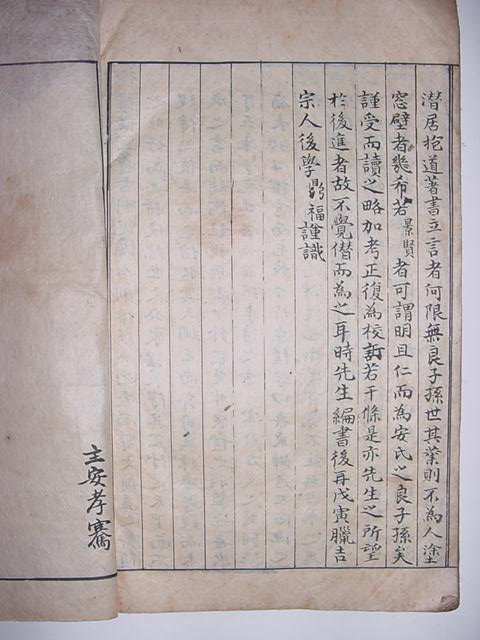 潛居抱道著書立言者何限無良子孫世其業則不為人塗
窓壁者幾希若景賢者可謂明且仁而為安氏之良子孫矣
謹受而讀之略加考正復為校訂若干條是亦先生之所望
於後進者故不覺僭而為之耳時先生編書後再戊寅臘吉
宗人後學鼎福謹識
主安孝騫